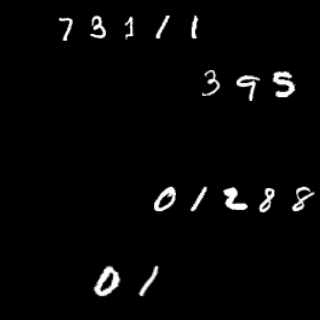 73111
395
01288
01